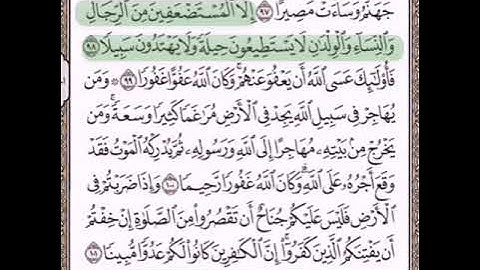 جَهَنَّمُ وَسَآءَتْ مَصِيرًا ۝٩٧ إِلَّا ٱلْمُسْتَضْعَفِينَ مِنَ ٱلرِّجَالِ
وَٱلنِّسَآءِ وَٱلْوِلْدَٰنِ لَا يَسْتَطِيعُونَ حِيلَةً وَلَا يَهْتَدُونَ سَبِيلًا ۝٩٨
فَأُو۟لَٰٓئِكَ عَسَى ٱللَّهُ أَن يَعْفُوَ عَنْهُمْ ۚ وَكَانَ ٱللَّهُ عَفُوًّا غَفُورًا ۝٩٩ ۞ وَمَن
يُهَاجِرْ فِى سَبِيلِ ٱللَّهِ يَجِدْ فِى ٱلْأَرْضِ مُرَٰغَمًا كَثِيرًا وَسَعَةً ۚ وَمَن
يَخْرُجْ مِنۢ بَيْتِهِۦ مُهَاجِرًا إِلَى ٱللَّهِ وَرَسُولِهِۦ ثُمَّ يُدْرِكْهُ ٱلْمَوْتُ فَقَدْ
وَقَعَ أَجْرُهُۥ عَلَى ٱللَّهِ ۗ وَكَانَ ٱللَّهُ غَفُورًا رَّحِيمًا ۝١٠٠ وَإِذَا ضَرَبْتُمْ فِى
ٱلْأَرْضِ فَلَيْسَ عَلَيْكُمْ جُنَاحٌ أَن تَقْصُرُوا۟ مِنَ ٱلصَّلَوٰةِ إِنْ خِفْتُمْ
أَن يَفْتِنَكُمُ ٱلَّذِينَ كَفَرُوٓا۟ ۚ إِنَّ ٱلْكَٰفِرِينَ كَانُوا۟ لَكُمْ عَدُوًّا مُّبِينًا ۝١٠١